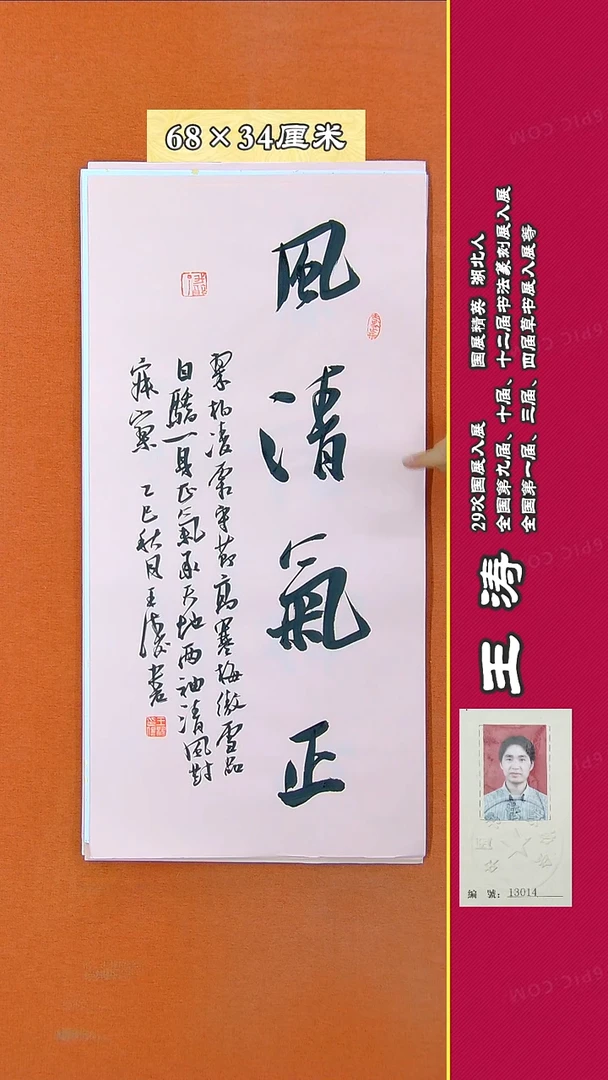 68×34厘米
風
清
氣
正
翠柏凌霜守節高寒梅傲雪品
自驕一身正氣承天地兩袖清風對
寂寥 乙巳秋月王濤書
王涛
29次国展入展 国展精英 湖北人
全国第九届、十届、十二届书法篆刻展入展
全国第一届、三届、四届草书展入展等
编 號:13014
6PIC.COM